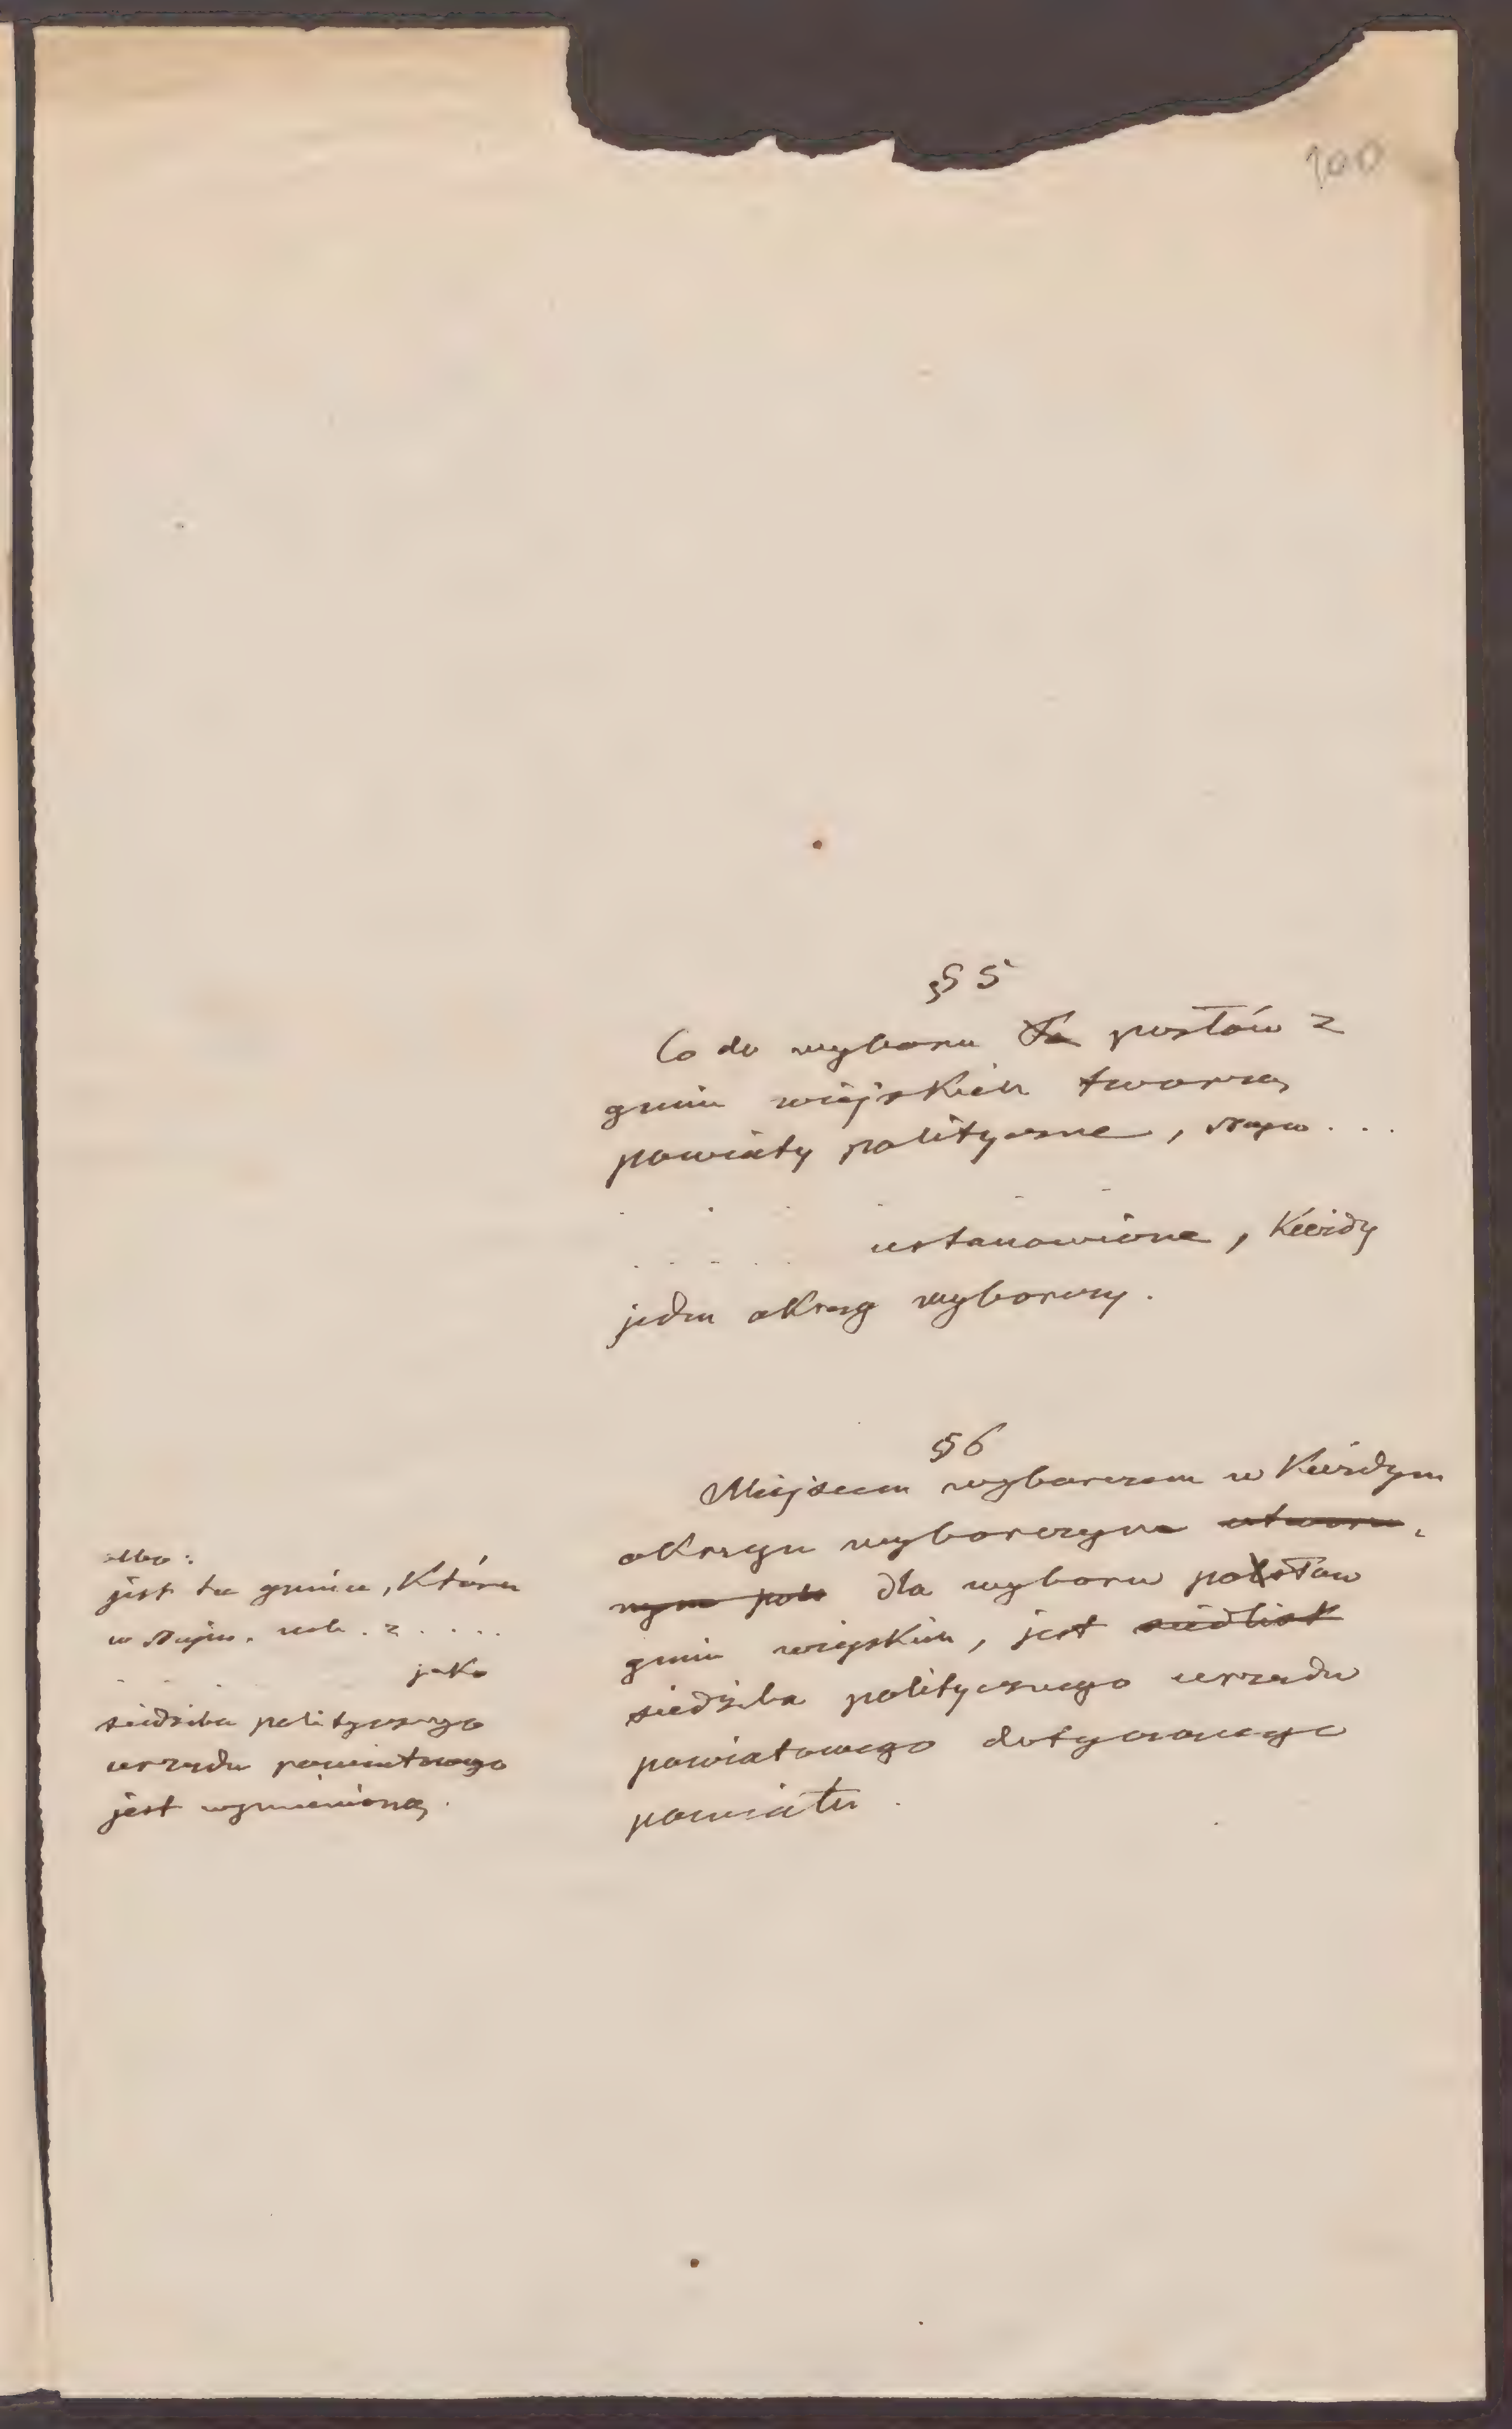 100
§ 5
Co do wyboru posłów z
gmin wiejskich tworzą
powiaty polityczne, Najw. . .
. . . . . ustanowione, każdy
jeden okręg wyborczy.
§ 6
Miejscem wyborczem w każdym
okręgu wyborczym utworzo-
nym pols dla wyboru posłów
gmin wiejskich, jest siedlisk
siedziba politycznego urzędu
powiatowego dotyczącego
powiatu.
albo:
jest ta gmina, która
w Najw. . z . . . .
jako
siedziba politycznego
urzędu powiatowego
jest wymienioną.